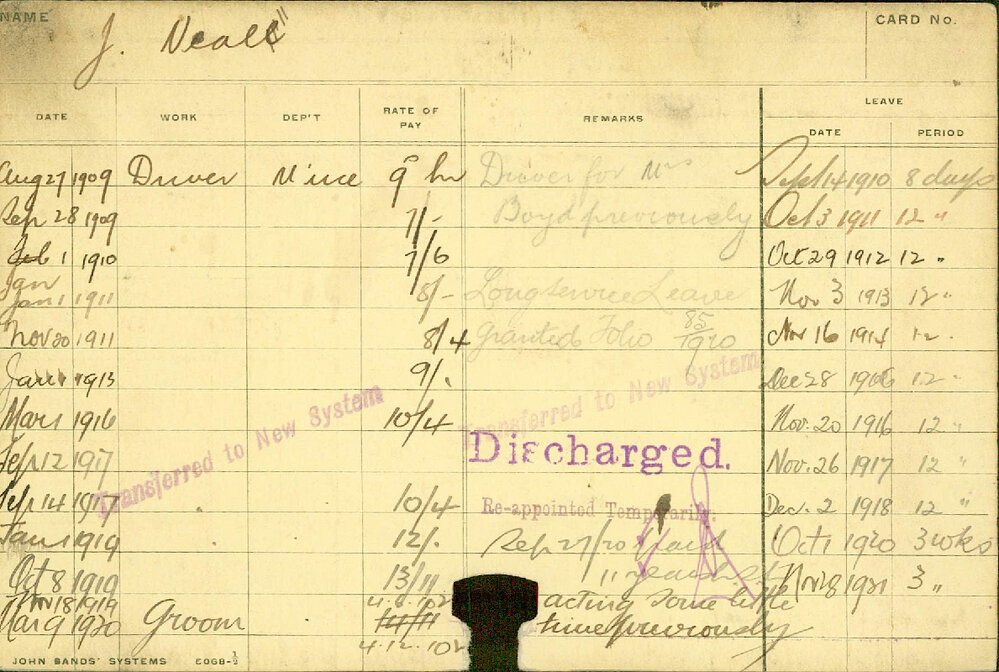 NAME
J. Neall
CARD No.
DATE WORK DEP'T RATE OF PAY REMARKS LEAVE
DATE PERIOD
Aug 27 1909 Driver Mine 9 hr Driver for Mrs Sept 14 1910 8 days
Sep 28 1909 7/- Boyd previously Oct 3 1911 12 "
Feb 1 1910 7/6 Oct 29 1912 12 "
Jan
Jan 1 1911 8/- Long service Leave Nov 3 1913 12 "
Nov 20 1911 8/4 Granted Folio 85/1920 Nov 16 1914 12 "
Jan 1 1913 9/. Dec 28 12 "
Mar 1 1916 10/4 Nov. 20 1916 12 "
Transferred to New System
Transferred to New System
Discharged.
Sep 12 1917 Nov. 26 1917 12 "
Sep 14 1917 10/4 Re-appointed Temporarily. Dec. 2 1918 12 "
Jan 1 1919 12/. Sep 27/20 Oct 1 1920 3 wks
Oct 8 1919 13/11 11 Nov 8 1921 3 "
Nov 18 1919 acting some little
Mar 9 1920 Groom time previously
4.12.10
JOHN SANDS' SYSTEMS E068-½